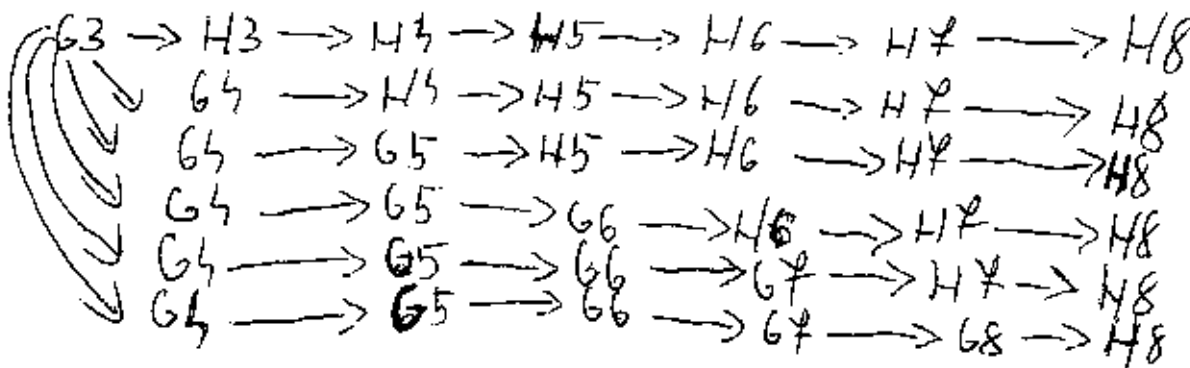 G3 → H3 → H4 → H5 → H6 → H7 → H8
G4 → H4 → H5 → H6 → H7 → H8
G4 → G5 → H5 → H6 → H7 → H8
G4 → G5 → G6 → H6 → H7 → H8
G4 → G5 → G6 → G7 → H7 → H8
G4 → G5 → G6 → G7 → G8 → H8